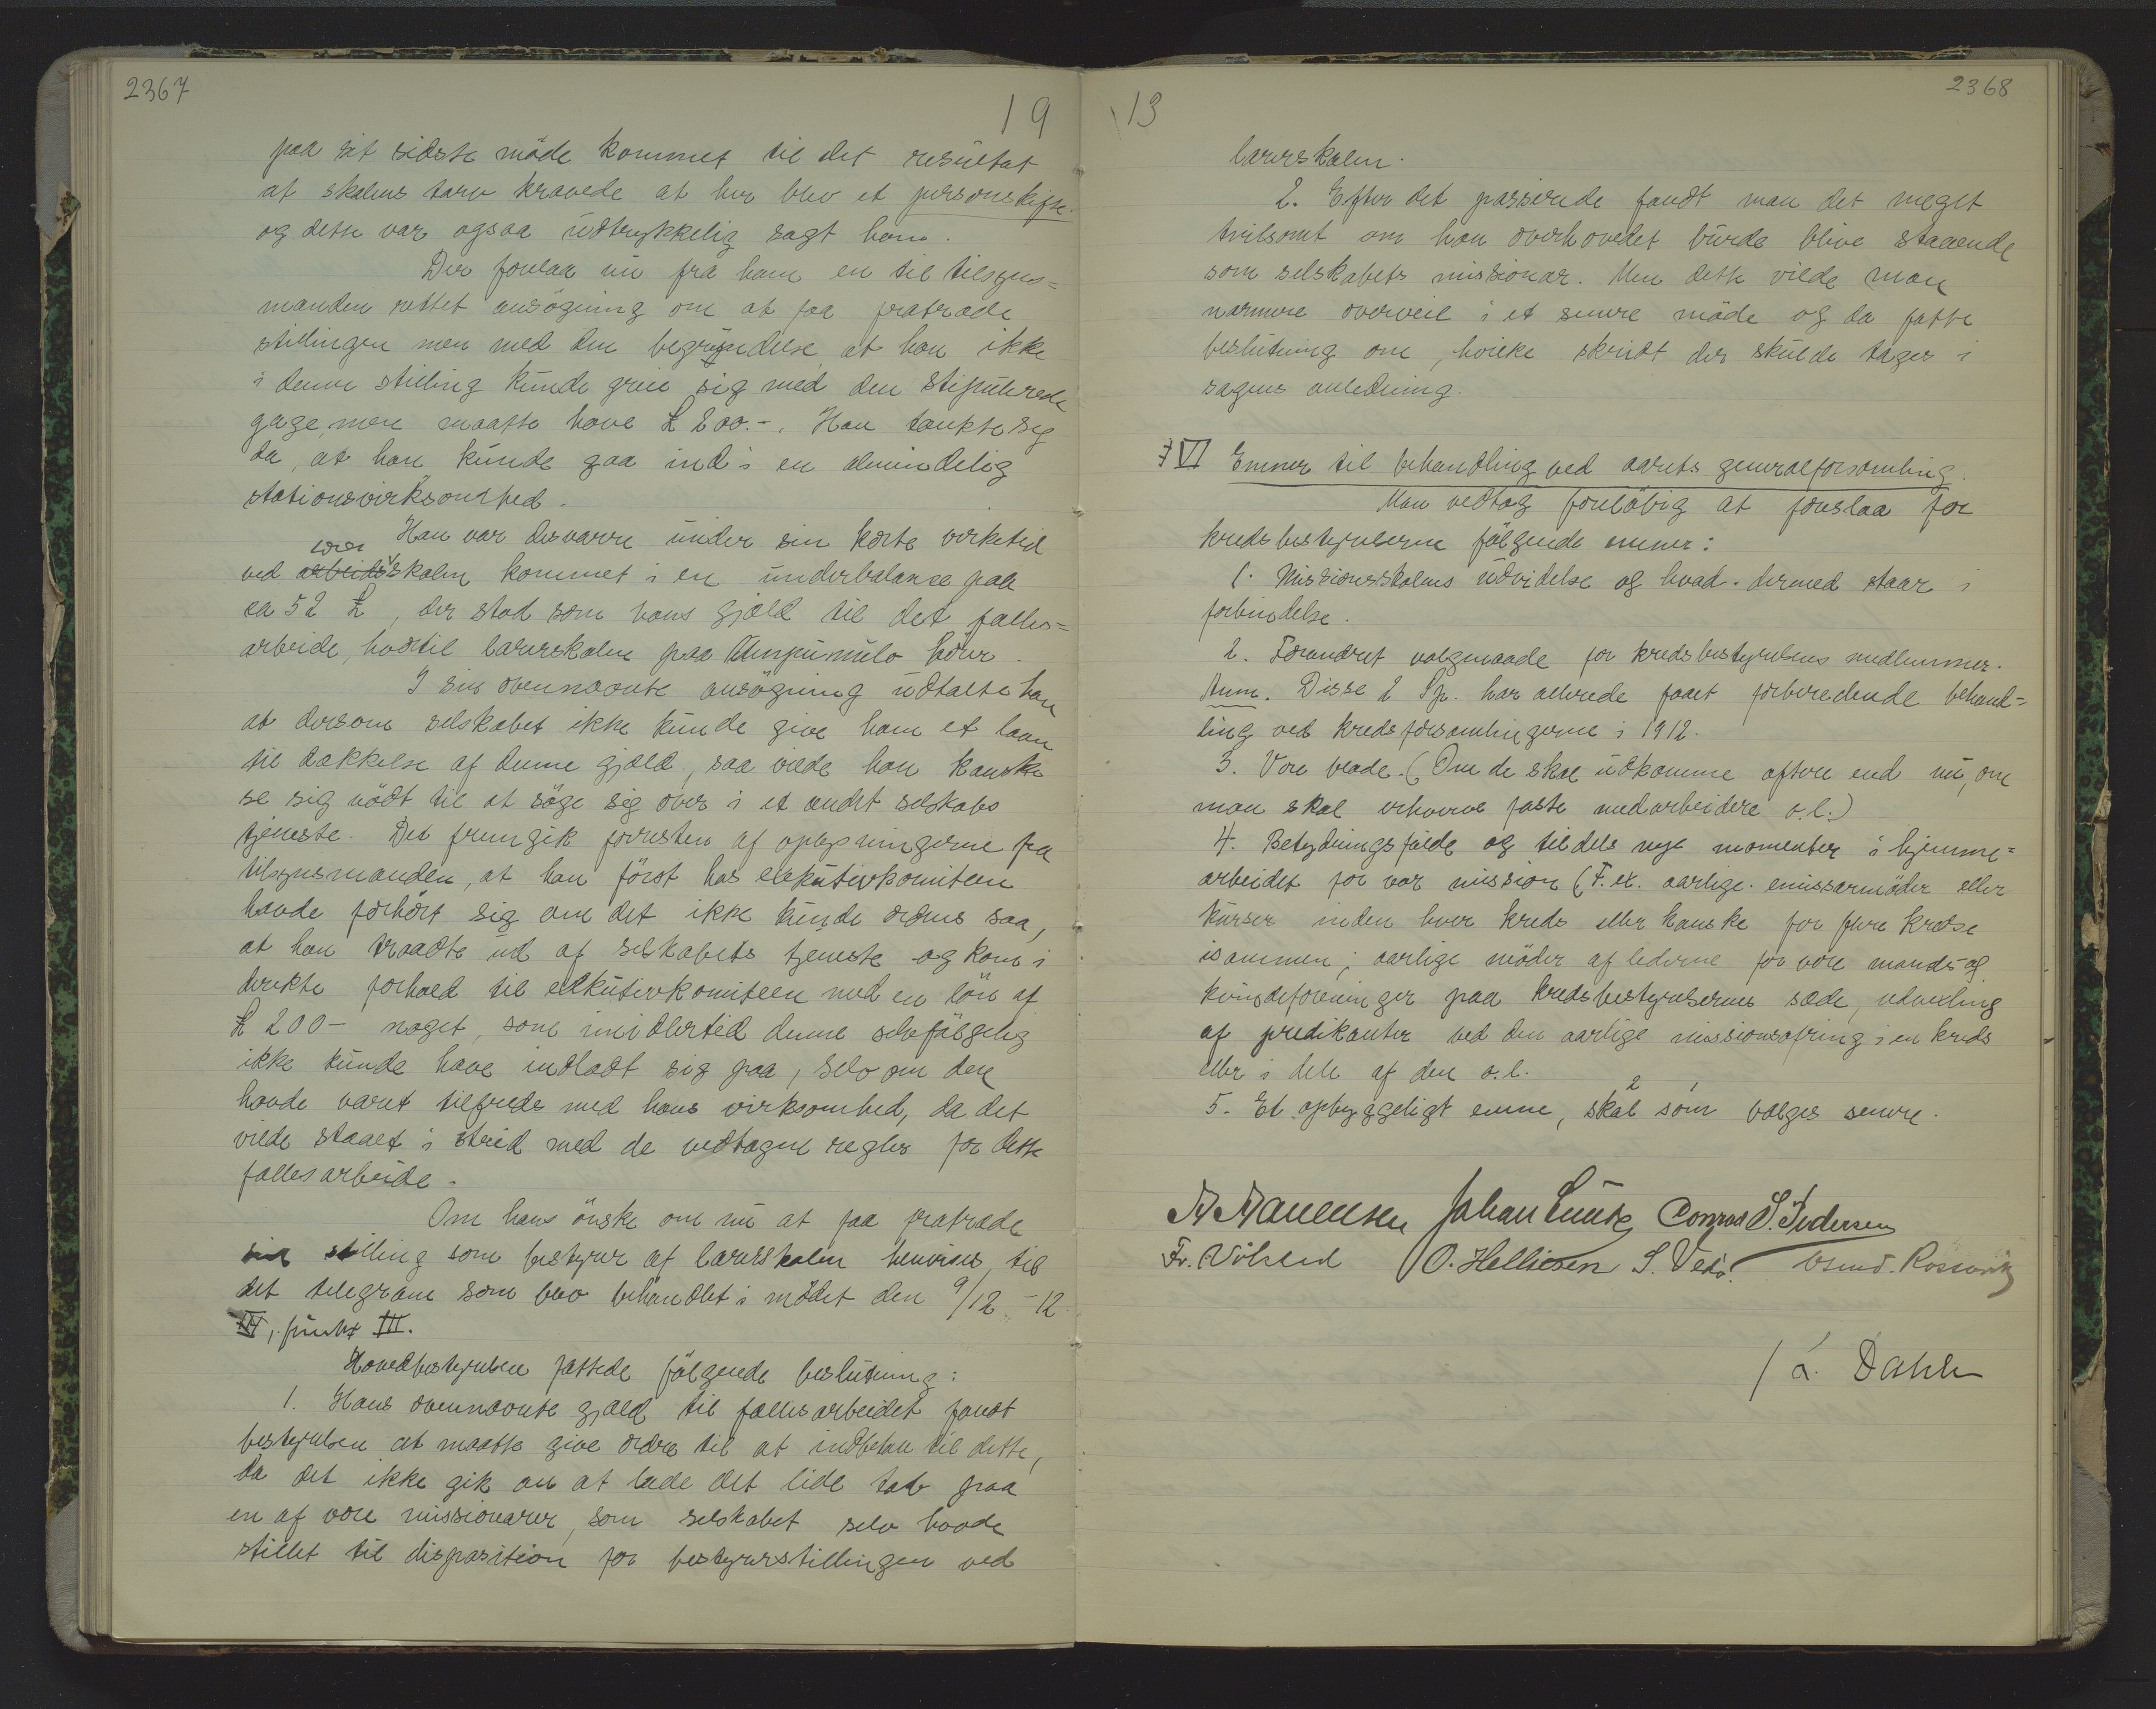 2367
19
paa sit sidste møde kommet til det resultat
at skolens tarv krævede at her blev et personskifte
og dette var ogsaa udtrykkelig sagt ham.
Der forelaa nu fra ham en til tilsyns=
manden rettet ansøgning om at faa fratræde
stillingen men med den begrundelse at han ikke
i denne stilling kunde greie sig med den stipulerede
gage, men maatte have £ 200.-. Han tænkte sig
da, at han kunde gaa ind i en almindelig
stationsvirksomhed.
Han var desværre under sin korte virketid
lærer
ved arbeidsskolen kommet i en underbalance paa
ca 52 £, der stod som hans gjæld til det fælles=
arbeide, hvortil lærerskolen paa Umpumulo hører.
I sin ovennævnte ansøgning udtalte han
at dersom selskabet ikke kunde give ham et laan
til dækkelse af denne gjæld, saa vilde han kanske
se sig nødt til at søge sig over i et andet selskabs
tjeneste. Det fremgik forresten af oplysningerne fra
tilsynsmanden, at han først hos exekutivkomiteen
havde forhørt sig om det ikke kunde ordnes saa,
at han traadte ud af selskabets tjeneste og kom i
direkte forhold til exekutivkomiteen med en løn af
£ 200- noget, som imidlertid denne selvfølgelig
ikke kunde have indladt sig paa, selv om den
havde været tilfreds med hans virksomhed, da det
vilde staaet i strid med de vedtagne regler for dette
fællesarbeide.
Om hans ønske om nu at faa fratræde
sin stilling som bestyrer af lærerskolen henvises til
det telegram som blev behandlet i mødet den 9/12-12
punkt III.
Hovedbestyrelsen fattede følgende beslutning:
1. Hans ovennævnte gjæld til fællesarbeidet fandt
bestyrelsen at maatte give ordre til at indbetale til dette,
da det ikke gik an at lade det lide tab paa
en af vore missionærer, som selskabet selv havde
stillet til disposition for bestyrerstillingen ved
13
2368
lærerskolen.
2. Efter det passerede fandt man det meget
tvilsomt om han overhovedet burde blive staaende
som selskabets missionær. Men dette vilde man
nærmere overveie i et senere møde og da fatte
beslutning om, hvilke skridt der skulde tages i
sagens anledning.
VI Emner til behandling ved aarets generalforsamling.
Man vedtog foreløbig at foreslaa for
kredsbestyrelserne følgende emner:
1. Missionsskolens udvidelse og hvad dermed staar i
forbindelse.
2. Forandret valgmaade for kredsbestyrelsens medlemmer.
Anm. Disse 2 Sp. har allerede faaet forberedende behand=
ling ved kredsforsamlingerne i 1912.
3. Vore blade. (Om de skal udkomme oftere end nu, om
man skal erhverve faste medarbeidere o.l.)
4. Betydningsfulde og tildels nye momenter i hjemme=
arbeidet for vor mission (F. ex. aarlige emissærmøder eller
kurser inden hver kreds eller kanske for flere kredse
isammen; aarlige møder af lederne for vore mands- og
kvindeforeninger paa kredsbestyrelsernes sæde, udvexling
af predikanter ved den aarlige missionsofring i en kreds
eller i dele af den o.l.
2 1
5. Et opbyggeligt emne, skal som vælges senere.
Johan Lunde Conrad S. Pedersen
O. Helliesen
L. Dahle